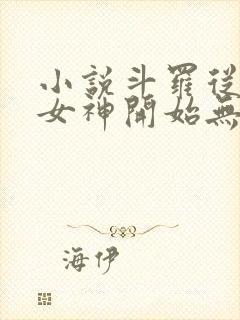 小說斗羅從
女神開始無
海伊